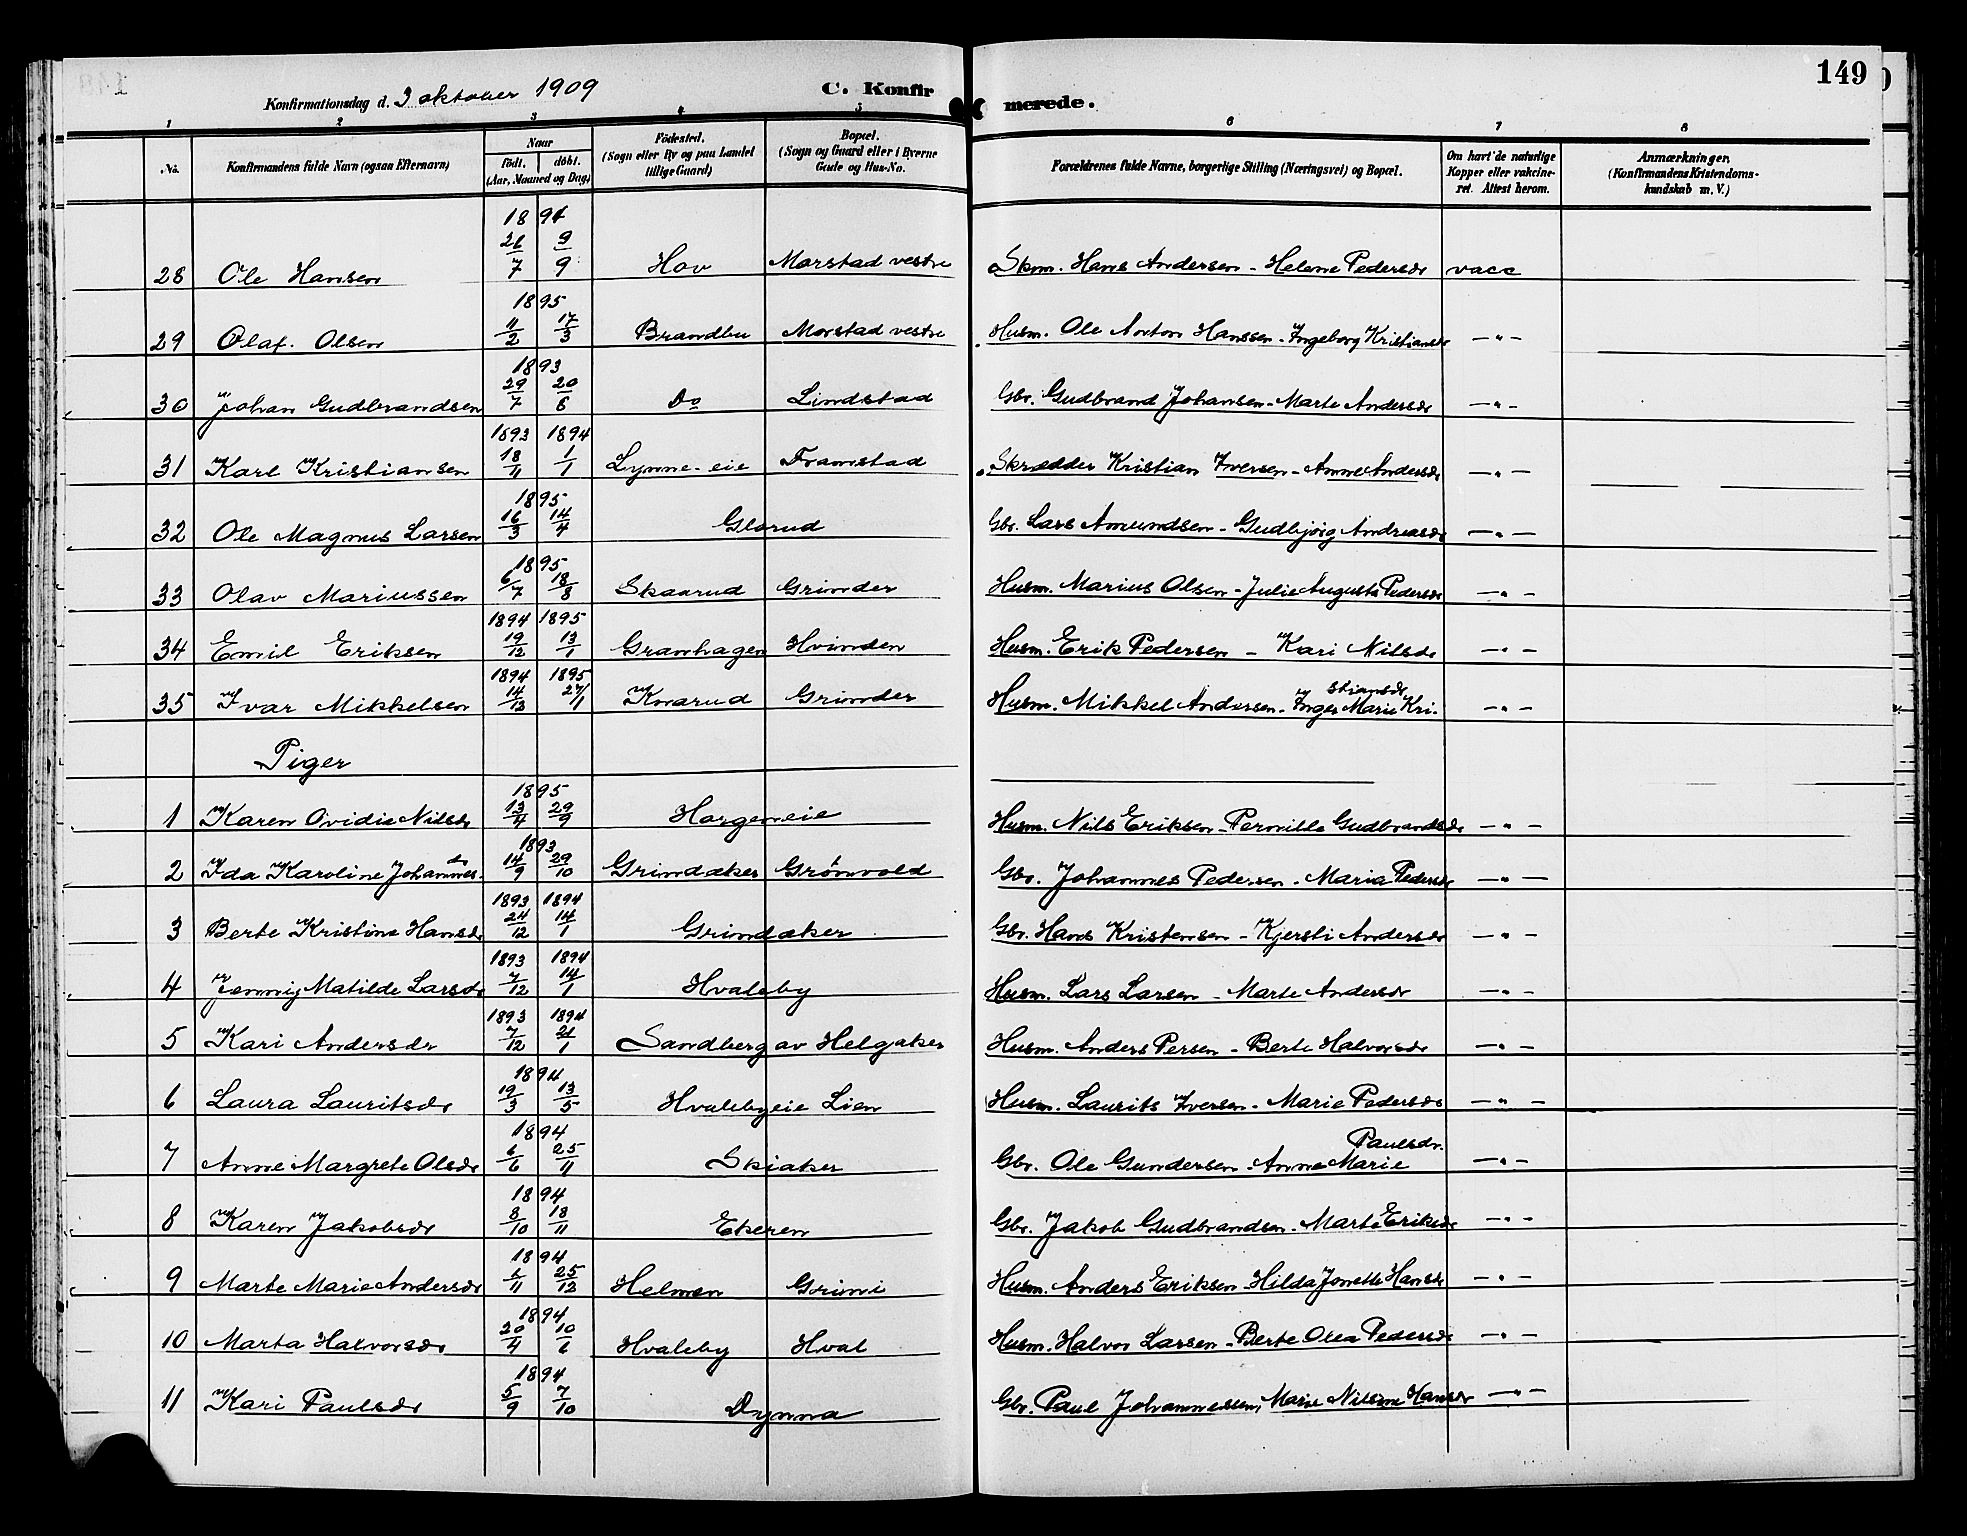 149
Konfirmationsdag d. 3 oktober 1909 C. Konfirmerede.
1 2 3 4 5 6 7 8
No. Konfirmandens fulde Navn (ogsaa Efternavn) Naar født. døbt. (Aar, Maaned og Dag) Födested. (Sogn eller By og paa Landet tillige Gaard) Bopæl. (Sogn og Gaard eller i Byerne Gade og Hus-No. Forældrenes fulde Navne, borgerlige Stilling (Næringsvei) og Bopæl. Om havt de naturlige Kopper eller vaccineret. Attest herom. Anmærkninger. (Konfirmandens Kristendomskundskab m. V.)
28 Ole Hansen 1894 26/7 9/9 Hov Morstad vestre Skom. Hans Andersen - Helene Pedersdr vacc
29 Olaf. Olsen 1895 11/2 17/3 Brandbu Morstad vestre Husm. Ole Anton Hanssen - Ingeborg Kristiansdr —"—
30 Johan Gudbrandsen 1893 29/7 20/8 Do Lindstad Gbr. Gudbrand Johansen - Marte Andersdr —"—
31 Karl Kristiansen 1893 1894 18/11 1/1 Lynne-eie Framstad Skrædder Kristian Iversen - Anne Andersdr —"—
32 Ole Magnus Larsen 1895 16/3 14/4 Glorud Gbr. Lars Amundsen - Gudbjörg Andreasdr —"—
33 Olav Mariussen 1895 6/7 18/8 Skaarud Grinder Husm. Marius Olsen - Julie Augusta Pedersdr —"—
34 Emil Eriksen 1894 1895 19/12 13/1 Granhagen Hvinden Husm. Erik Pedersen - Kari Nilsdr —"—
35 Ivar Mikkelsen 1894 1895 14/12 27/1 Knarud Grinder Husm. Mikkel Andersen - Inger Marie Kristiansdr —"—
Piger
1 Karen Ovidie Nilsdr 1895 13/4 29/9 Horgeneie Husm. Nils Eriksen - Pernille Gudbrandsdr —"—
2 Ida Karoline Johannesdr 1893 14/9 29/10 Grindaker Grönvold Gbr. Johannes Pedersen - Maria Pedersdr —"—
3 Berte Kristine Hansdr 1893 1894 24/12 14/1 Grindaker Gbr. Hans Kristensen - Kjersti Andersdr —"—
4 Jenny Matilde Larsdr 1893 1894 7/12 14/1 Hvaleby Husm. Lars Larsen - Marte Andersdr —"—
5 Kari Andersdr 1893 1894 7/12 21/1 Sandberg av Helgaker Husm. Anders Persen - Berte Halvorsdr —"—
6 Laura Lauritsdr 1894 19/3 13/5 Hvalebyeie Lien Husm. Laurits Iversen - Marie Pedersdr —"—
7 Anne Margrete Olsdr 1894 6/6 25/11 Skiaker Gbr. Ole Gundersen - Anne Marie Paulsdr. —"—
8 Karen Jakobsdr 1894 8/10 18/11 Ekeren Gbr. Jakob Gudbrandsen - Marte Eriksdr —"—
9 Marte Marie Andersdr 1894 /11 25/12 Helmen Grini Husm. Anders Eriksen - Hilda Jonette Hansdr —"—
10 Marta Halvorsdr 1894 20/4 10/6 Hvaleby Hval Husm. Halvor Larsen - Berte Olea Pedersdr —"—
11 Kari Paulsdr 1894 5/9 7/10 Dynna Gbr. Paul Johannessen, Marie Nilsine Hansdr —"—